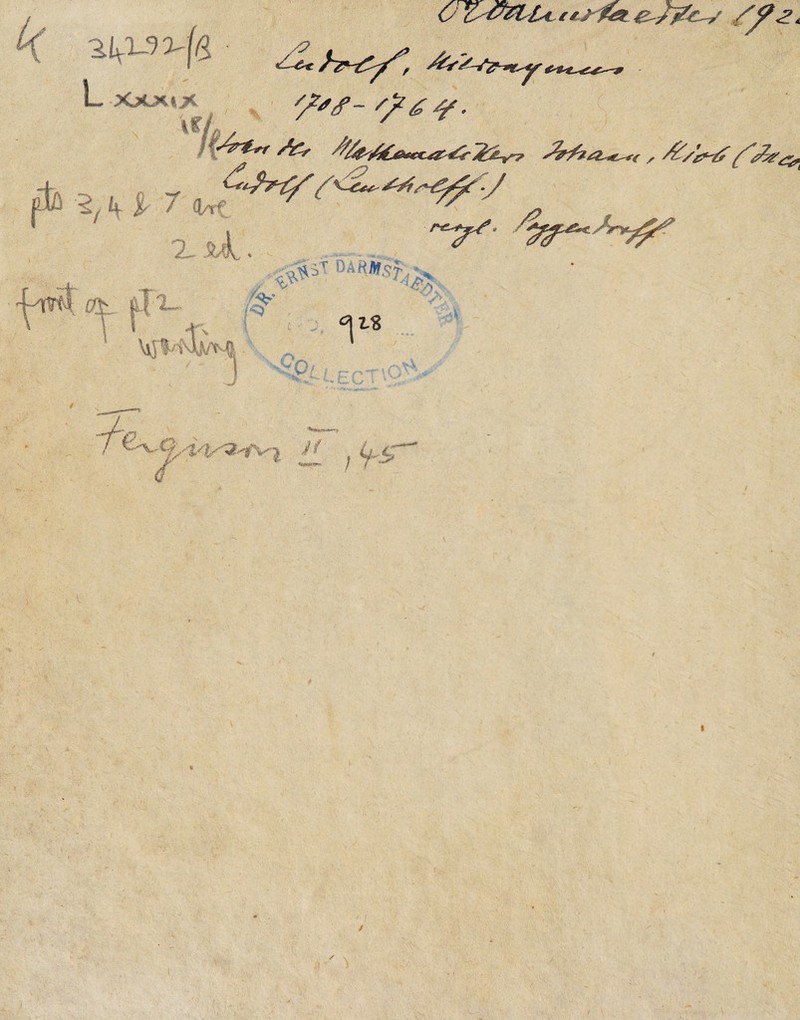 Dr Darmstaedter 192
K 34292/B
Ludolf, Hieronymus
L xxxix
1708-1764.
18/
Sohn des Mathematikers Johann, Hiob (Jaco
Ludolf (Leutholff.)
pts 3, 4 & 7 are
2 ed.
vergl. Poggendorff
front of pt 2
wanting
DR. ERNST DARMSTAEDTER
928
COLLECTION
Ferguson II, 45